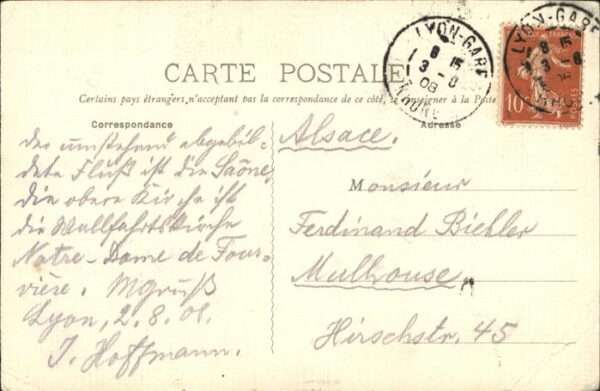 CARTE POSTALE
Certains pays étrangers n'acceptant pas la correspondance de ce côté, se renseigner à la Poste
Correspondance
Adresse
LYON-GARE
RHONE
LYON-GARE
10
Der umstehend abgebil-
dete Fluß ist die Saône,
die obere Kirche ist
die Wallfahrtskirche
Notre-Dame de Four-
vière. MGruß
Lyon, 2.8.08.
J. Hoffmann.
Alsace.
Monsieur
Ferdinand Bichler
Mulhouse
Hirschstr. 45